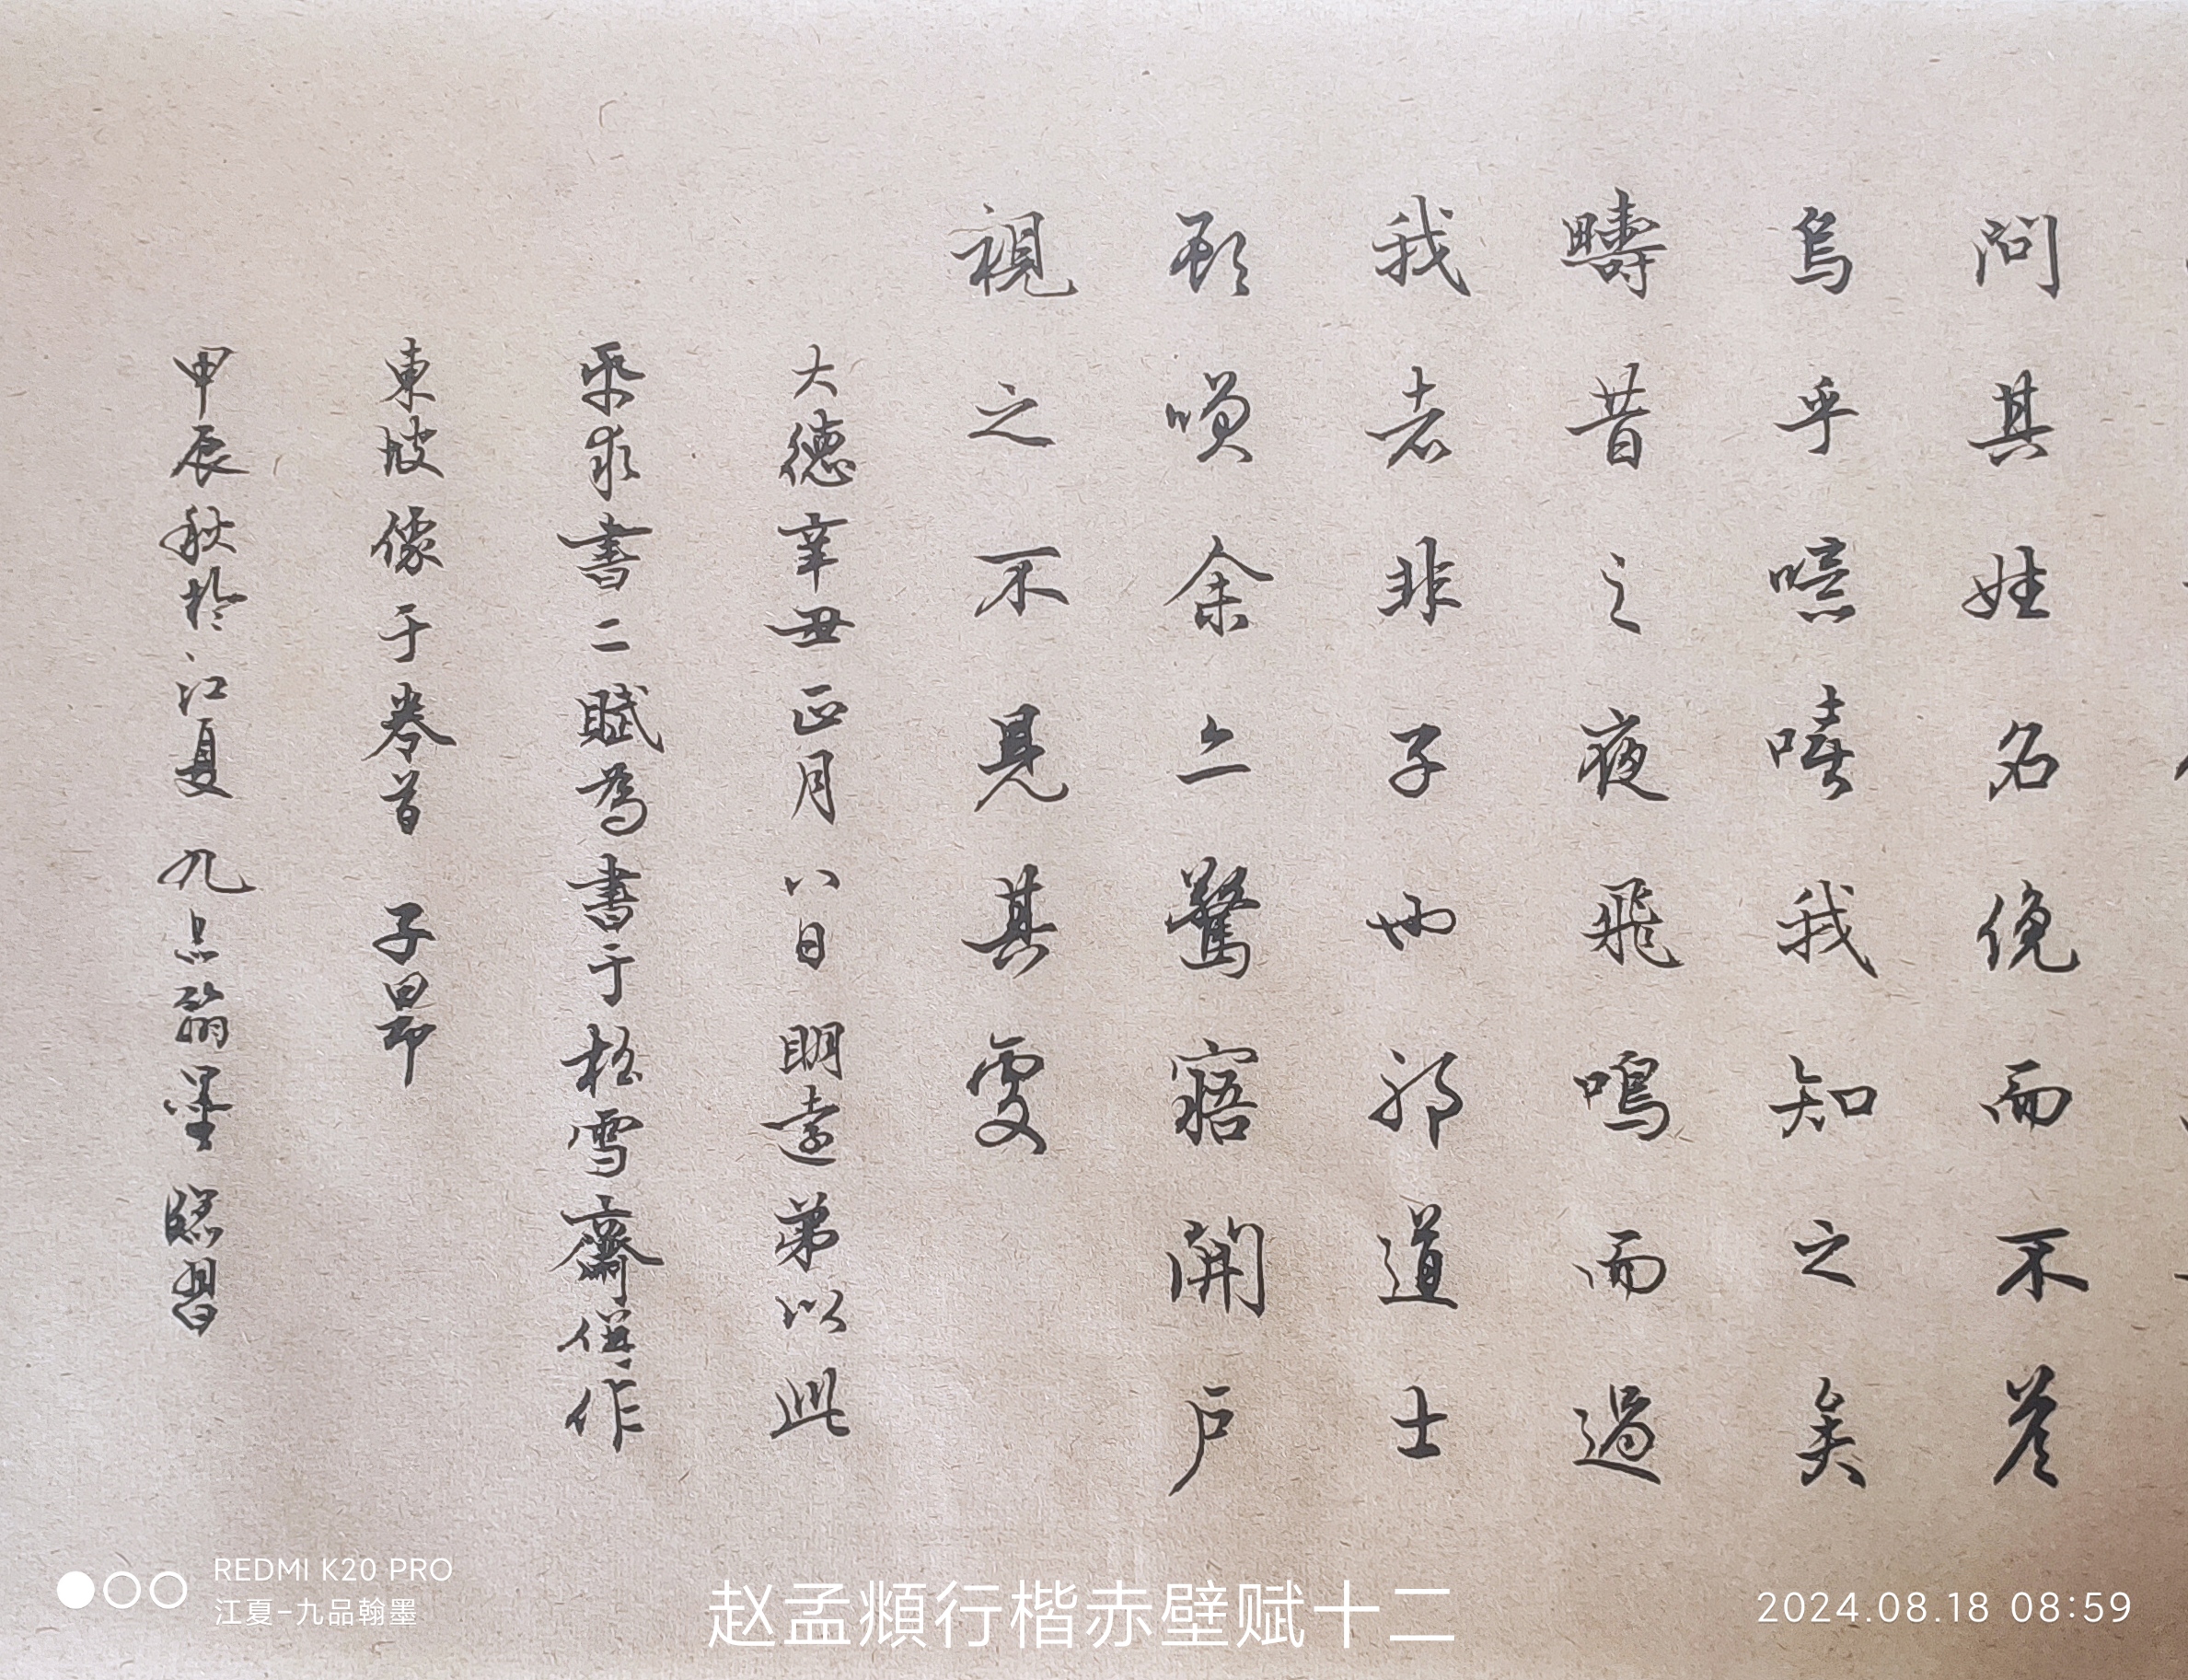 問其姓名俛而不答
烏乎噫嘻我知之矣
疇昔之夜飛鳴而過
我者非子也邪道士
顧唉余亦驚寤開户
視之不見其處
大德辛丑正月八日明遠弟以此
帋求書二賦為書于松雪齋併作
東坡像于卷首 子昂
甲辰秋於江夏九品翰墨臨習
REDMI K20 PRO
江夏-九品翰墨
赵孟頫行楷赤壁赋十二
2024.08.18 08:59